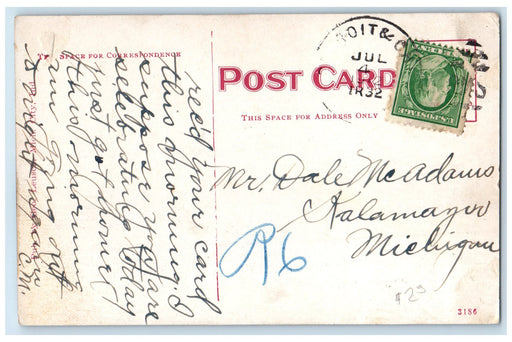 SPACE FOR CORRESPONDENCE
POST CARD
THIS SPACE FOR ADDRESS ONLY
OIT &
JUL
4
TR 32
U.S. POSTAGE
rec'd your card
this morning. I
suppose you are
celebrating today
just got home
this morning
am
C.M.
Mr. Dale McAdams
Kalamazoo
Michigan
R6
$2
3186